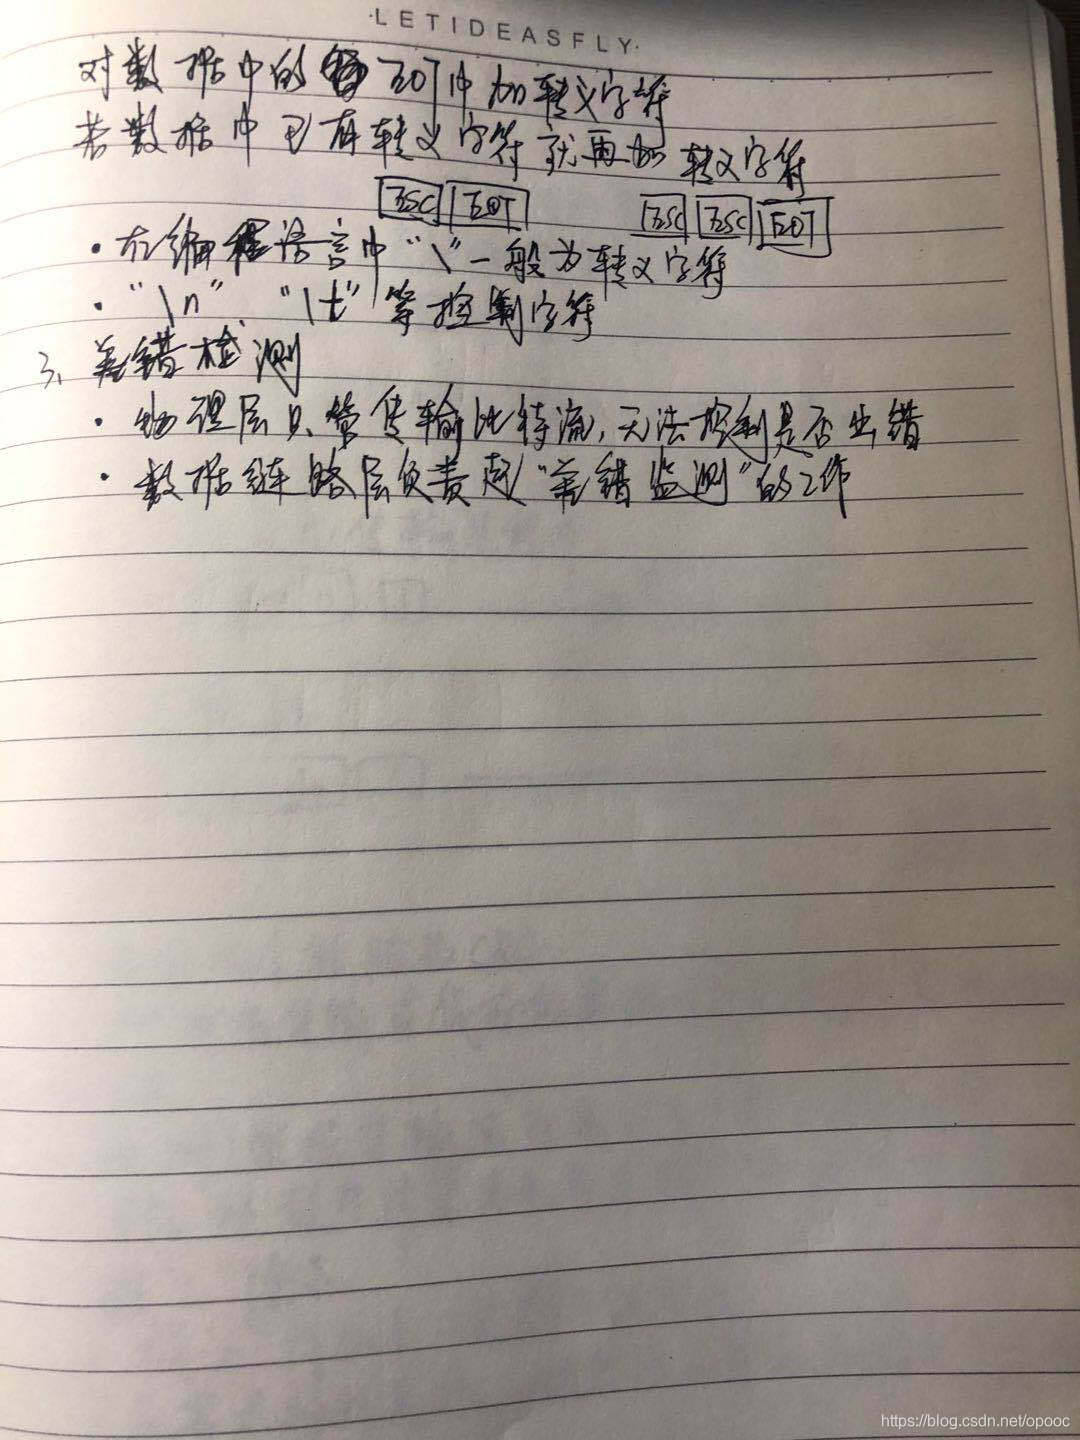 ·LETIDEASFLY·
对数据中的 EOT中加转义字符
若数据中已有转义字符就再加转义字符
ESC EOT ESC ESC EOT
·在编程语言中“\”一般为转义字符
·“\n”、“\t”等控制字符
3、差错检测
·物理层只管传输比特流,无法控制是否出错
·数据链路层负责起“差错监测”的工作
https://blog.csdn.net/opooc